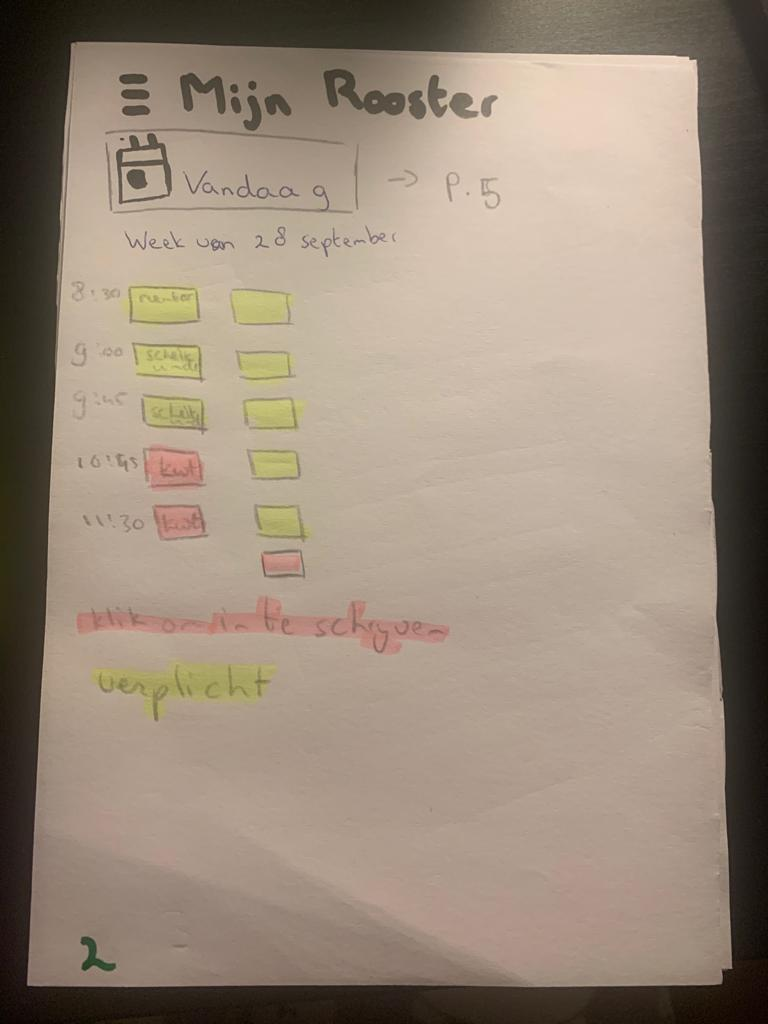 Mijn Rooster
Vandaag → P.5
Week van 28 september
8:30 mentor
9:00 scheik unde
9:45 scheik unde
10:45 kwt
11:30 kwt
klik om in te schrijven
verplicht
2